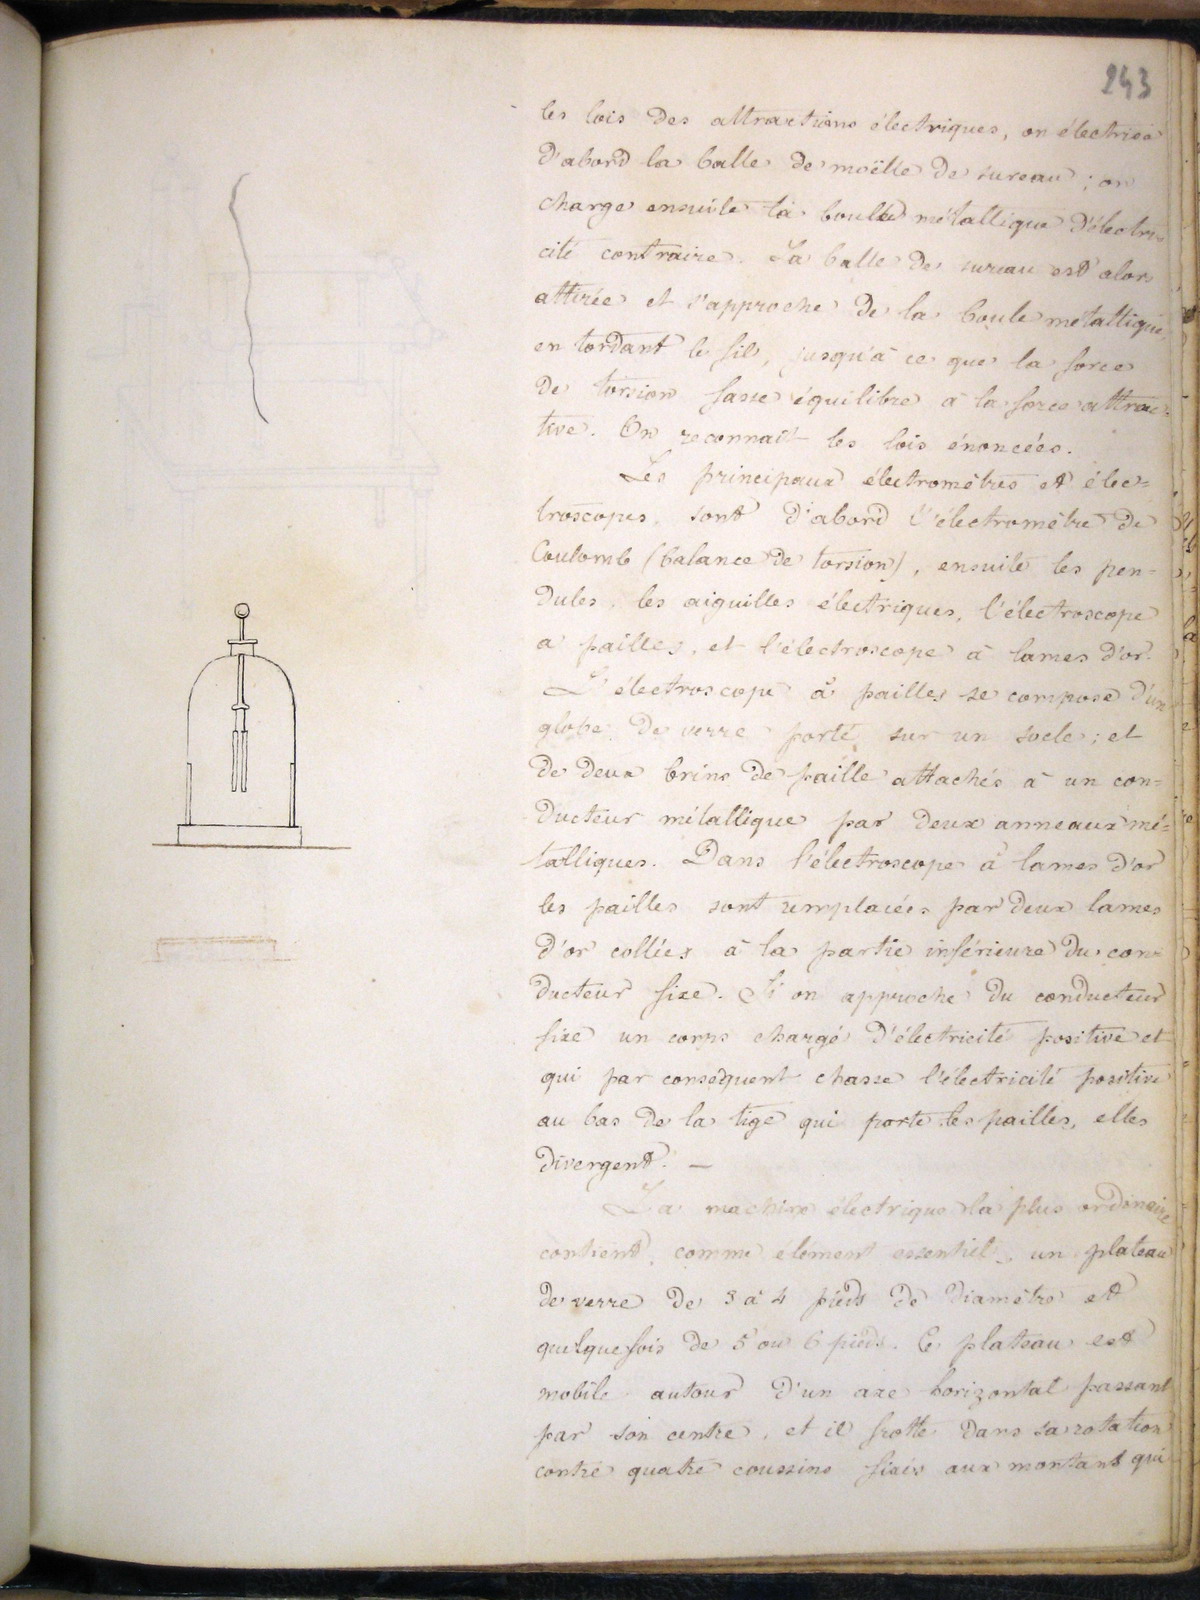 243
les lois des attractions électriques, on électrise
d'abord la balle de moëlle de sureau ; on
charge ensuite la boule métallique d'électri-
cité contraire. La balle de sureau est alors
attirée et s'approche de la boule métallique,
en tordant le fil, jusqu'à ce que la force
de torsion fasse équilibre à la force attrac-
tive. On reconnait les lois énoncées.
Les principaux électromètres et élec=
troscopes, sont d'abord l'électromètre de
Coulomb (balance de torsion), ensuite les pen-
dules, les aiguilles électriques, l'électroscope
a pailles, et l'électroscope à lames d'or.
L'électroscope à pailles se compose d'un
globe de verre porté sur un socle ; et
de deux brins de paille attachés à un con=
ducteur métallique par deux anneaux mé=
talliques. Dans l'électroscope à lames d'or
les pailles sont remplacées par deux lames
d'or collées à la partie inférieure du con-
ducteur fixe. Si on approche du conducteur
fixe un corps chargé d'électricité positive et
qui par conséquent chasse l'électricité positive
au bas de la tige qui porte les pailles, elles
divergent. —
La machine électrique la plus ordinaire
contient, comme élément essentiel, un plateau
de verre de 3 à 4 pieds de diamètre et
quelquefois de 5 ou 6 pieds. Ce plateau est
mobile autour d'un axe horizontal passant
par son centre, et il frotte dans sa rotation
contre quatre coussins fixés aux montants qui